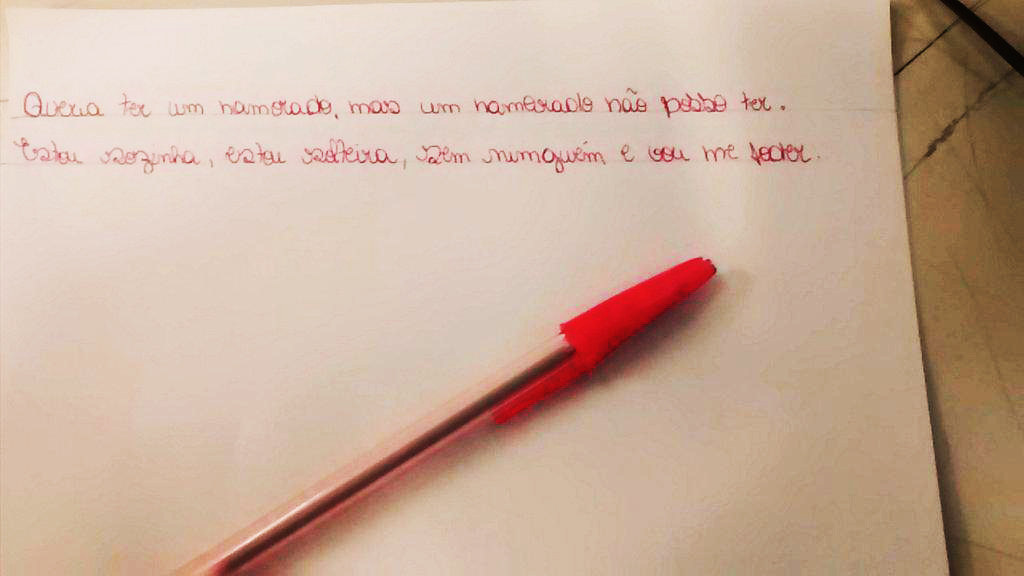 Queria ter um namorado, mas um namorado não posso ter.
Estou sozinha, estou solteira, sem ninguém e vou me foder.